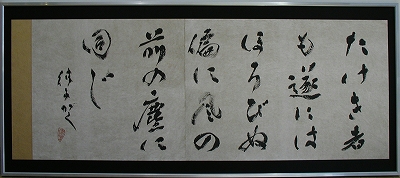 たけき者
も遂には
ほろびぬ
偏に風の
前の塵に
同じ